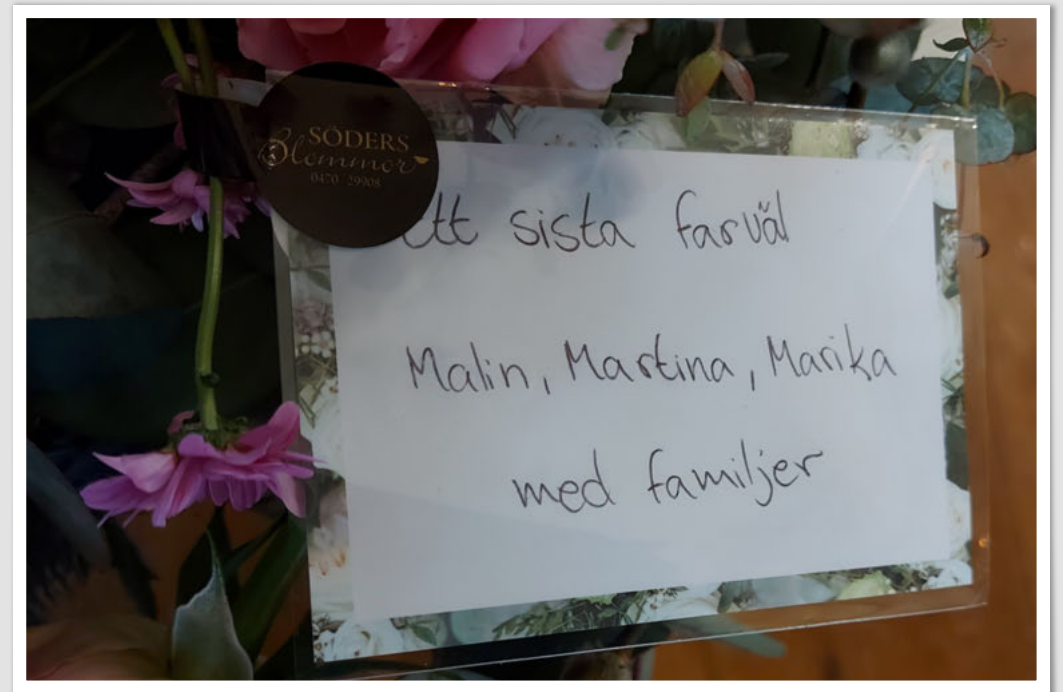 SÖDERS
Blommor
0470-29908
Ett sista farväl
Malin, Martina, Marika
med familjer